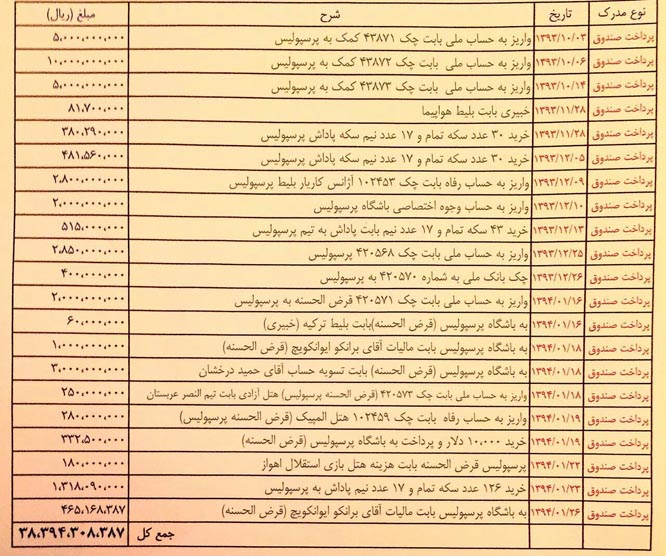 نوع مدرک تاریخ شرح مبلغ (ریال)
پرداخت صندوق ۱۳۹۳/۱۰/۰۳ واریز به حساب ملی بابت چک ۴۳۸۷۱ کمک به پرسپولیس ۵,۰۰۰,۰۰۰,۰۰۰
پرداخت صندوق ۱۳۹۳/۱۰/۰۶ واریز به حساب ملی بابت چک ۴۳۸۷۲ کمک به پرسپولیس ۱۰,۰۰۰,۰۰۰,۰۰۰
پرداخت صندوق ۱۳۹۳/۱۰/۱۴ واریز به حساب ملی بابت چک ۴۳۸۷۳ کمک به پرسپولیس ۵,۰۰۰,۰۰۰,۰۰۰
پرداخت صندوق ۱۳۹۳/۱۱/۲۸ خبیری بابت بلیط هواپیما ۸۱,۷۰۰,۰۰۰
پرداخت صندوق ۱۳۹۳/۱۱/۲۸ خرید ۳۰ عدد سکه تمام و ۱۷ عدد نیم سکه پاداش پرسپولیس ۳۸۰,۲۹۰,۰۰۰
پرداخت صندوق ۱۳۹۳/۱۲/۰۵ خرید ۳۰ عدد سکه تمام و ۱۷ عدد نیم سکه پاداش پرسپولیس ۴۸۱,۵۶۰,۰۰۰
پرداخت صندوق ۱۳۹۳/۱۲/۰۹ واریز به حساب رفاه بابت چک ۱۰۲۴۵۳ آژانس کاربار بلیط پرسپولیس ۲,۸۰۰,۰۰۰,۰۰۰
پرداخت صندوق ۱۳۹۳/۱۲/۱۰ واریز به حساب وجوه اختصاصی باشگاه پرسپولیس ۲,۰۰۰,۰۰۰,۰۰۰
پرداخت صندوق ۱۳۹۳/۱۲/۱۳ خرید ۴۳ سکه تمام و ۱۷ عدد نیم بابت پاداش به تیم پرسپولیس ۵۱۵,۰۰۰,۰۰۰
پرداخت صندوق ۱۳۹۳/۱۲/۲۵ واریز به حساب ملی بابت چک ۴۲۰۵۶۸ پرسپولیس ۲,۸۵۰,۰۰۰,۰۰۰
پرداخت صندوق ۱۳۹۳/۱۲/۲۶ چک بانک ملی به شماره ۴۲۰۵۷۰ به پرسپولیس ۴۰۰,۰۰۰,۰۰۰
پرداخت صندوق ۱۳۹۴/۰۱/۱۶ واریز به حساب ملی بابت چک ۴۲۰۵۷۱ قرض الحسنه به پرسپولیس ۲,۰۰۰,۰۰۰,۰۰۰
پرداخت صندوق ۱۳۹۴/۰۱/۱۶ به باشگاه پرسپولیس (قرض الحسنه)بابت بلیط ترکیه (خبیری) ۶۰,۰۰۰,۰۰۰
پرداخت صندوق ۱۳۹۴/۰۱/۱۸ به باشگاه پرسپولیس بابت مالیات آقای برانکو ایوانکویچ (قرض الحسنه) ۱,۰۰۰,۰۰۰,۰۰۰
پرداخت صندوق ۱۳۹۴/۰۱/۱۸ به باشگاه پرسپولیس (قرض الحسنه) بابت تسویه حساب آقای حمید درخشان ۳,۰۰۰,۰۰۰,۰۰۰
پرداخت صندوق ۱۳۹۴/۰۱/۱۸ واریز به حساب ملی بابت چک ۴۲۰۵۷۳ (قرض الحسنه پرسپولیس) هتل آزادی بابت تیم النصر عربستان ۲۵۰,۰۰۰,۰۰۰
پرداخت صندوق ۱۳۹۴/۰۱/۱۹ واریز به حساب رفاه بابت چک ۱۰۲۴۵۹ هتل المپیک (قرض الحسنه پرسپولیس) ۲۸۰,۰۰۰,۰۰۰
پرداخت صندوق ۱۳۹۴/۰۱/۱۹ خرید ۱۰,۰۰۰ دلار و پرداخت به باشگاه پرسپولیس (قرض الحسنه) ۳۳۲,۵۰۰,۰۰۰
پرداخت صندوق ۱۳۹۴/۰۱/۲۲ پرسپولیس قرض الحسنه بابت هزینه هتل بازی استقلال اهواز ۱۸۰,۰۰۰,۰۰۰
پرداخت صندوق ۱۳۹۴/۰۱/۲۳ خرید ۱۲۶ عدد سکه تمام و ۱۷ عدد نیم پاداش به پرسپولیس ۱,۳۱۸,۰۹۰,۰۰۰
پرداخت صندوق ۱۳۹۴/۰۱/۲۶ به باشگاه پرسپولیس بابت مالیات آقای برانکو ایوانکویچ (قرض الحسنه) ۴۶۵,۱۶۸,۳۸۷
جمع کل ۳۸,۳۹۴,۳۰۸,۳۸۷